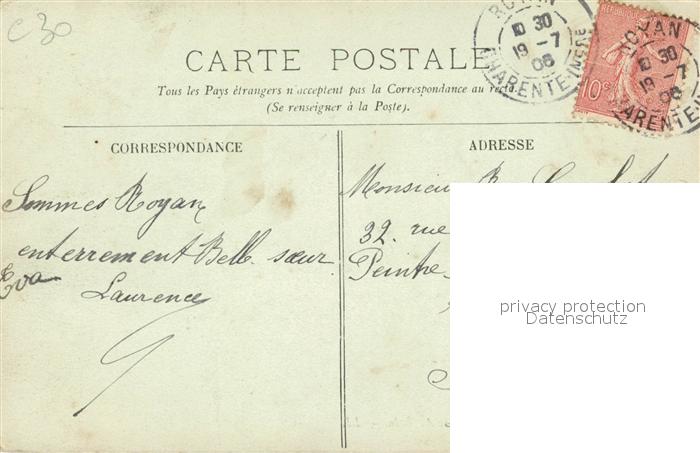 c30
ROYAN
10 30
19-7
06
CHARENTE-INFRE
RÉPUBLIQUE
10c
ROYAN
10 30
19-7
06
CHARENTE
CARTE POSTALE
Tous les Pays étrangers n'acceptent pas la Correspondance au recto.
(Se renseigner à la Poste).
CORRESPONDANCE
ADRESSE
Sommes Royan
enterrement Belle sœur
Eva
Laurence
Monsieur
32. rue
Peintre
privacy protection
Datenschutz